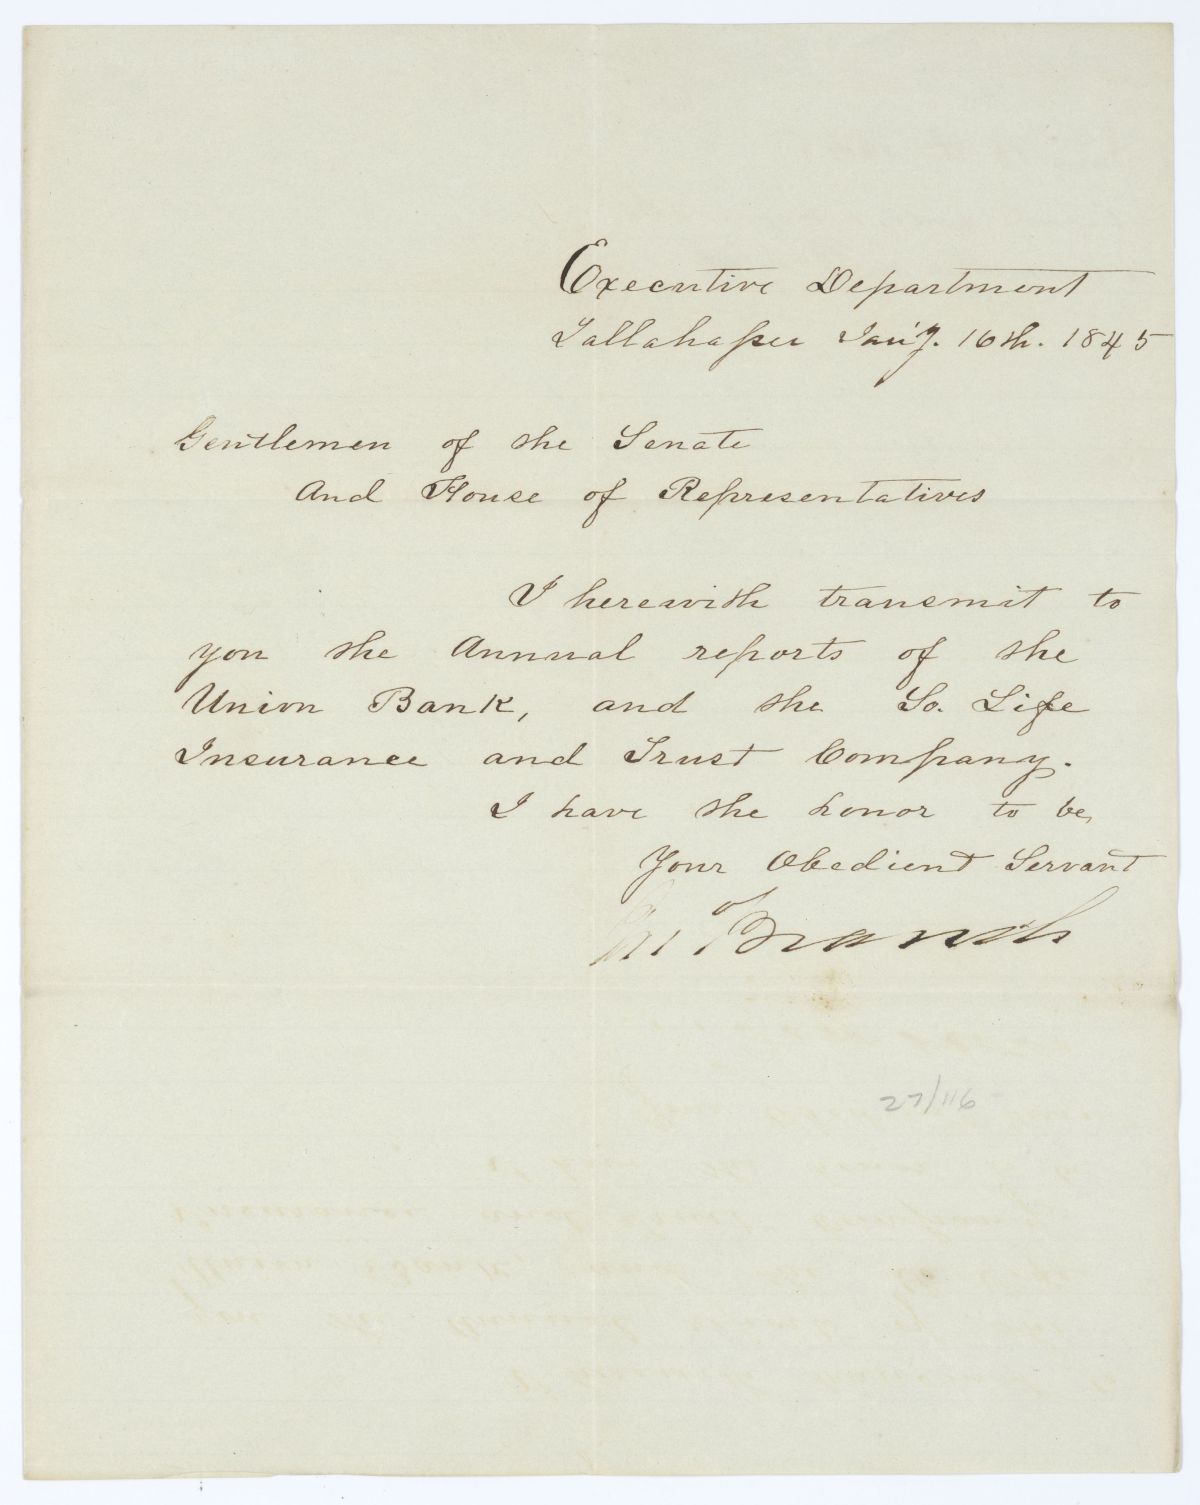 Executive Department
Tallahassee Jan'y. 16th. 1845
Gentlemen of the Senate
And House of Representatives
I herewith transmit to
you the Annual reports of the
Union Bank, and the So. Life
Insurance and Trust Company.
I have the honor to be,
Your Obedient Servant
Jno Branch
27/116